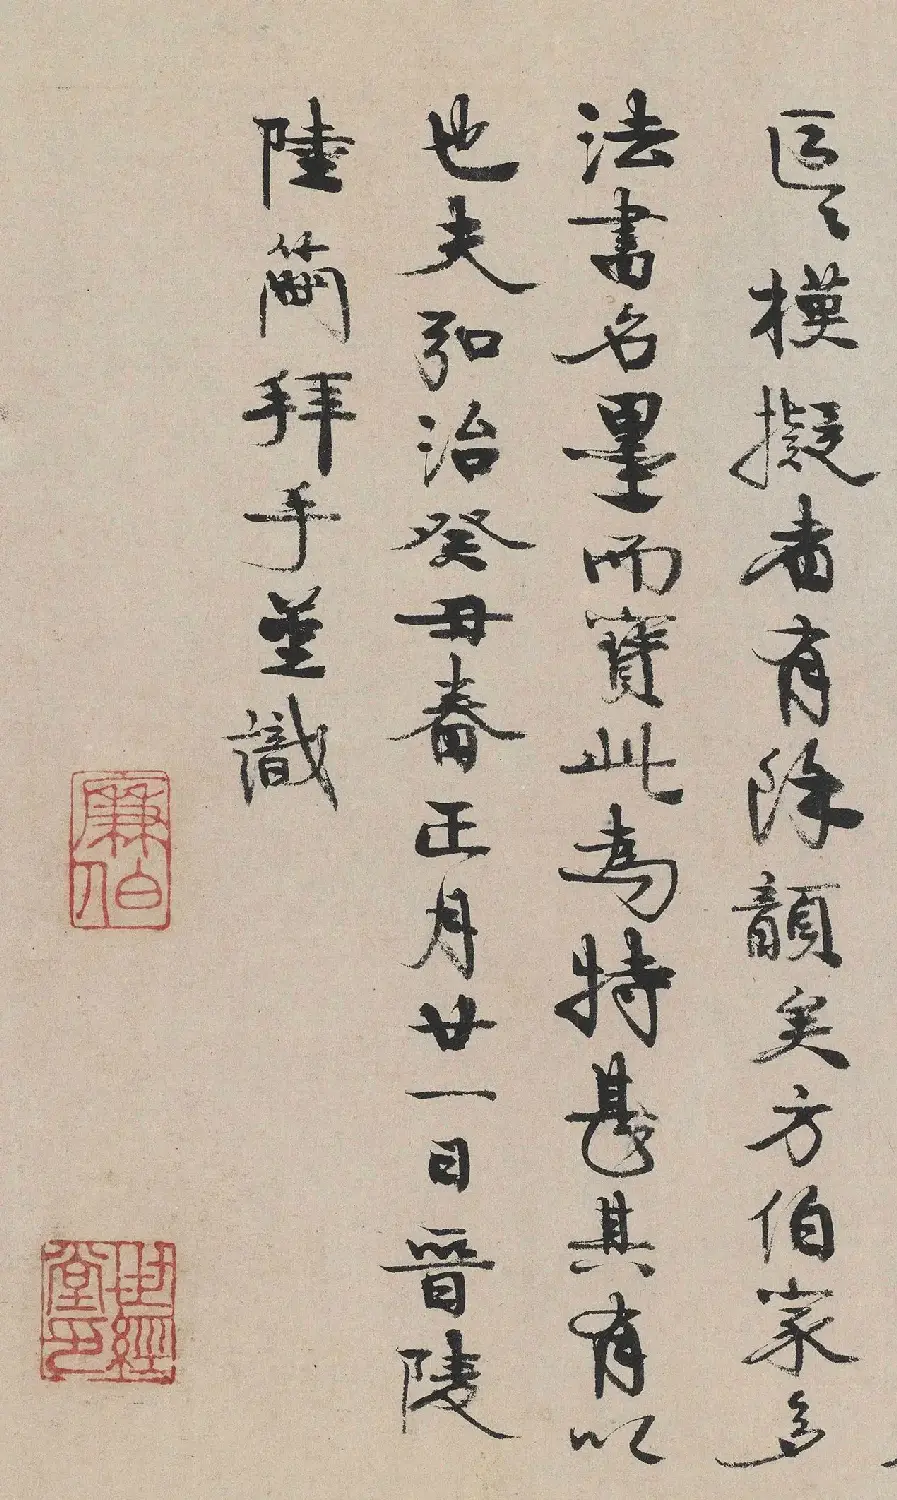 區〻模擬者有除顥矣方伯家多
法書名墨而寶此為特甚其有以
也夫弘治癸丑春正月廿一日晉陵
陸簡拜手並識
廉伯
世經堂印